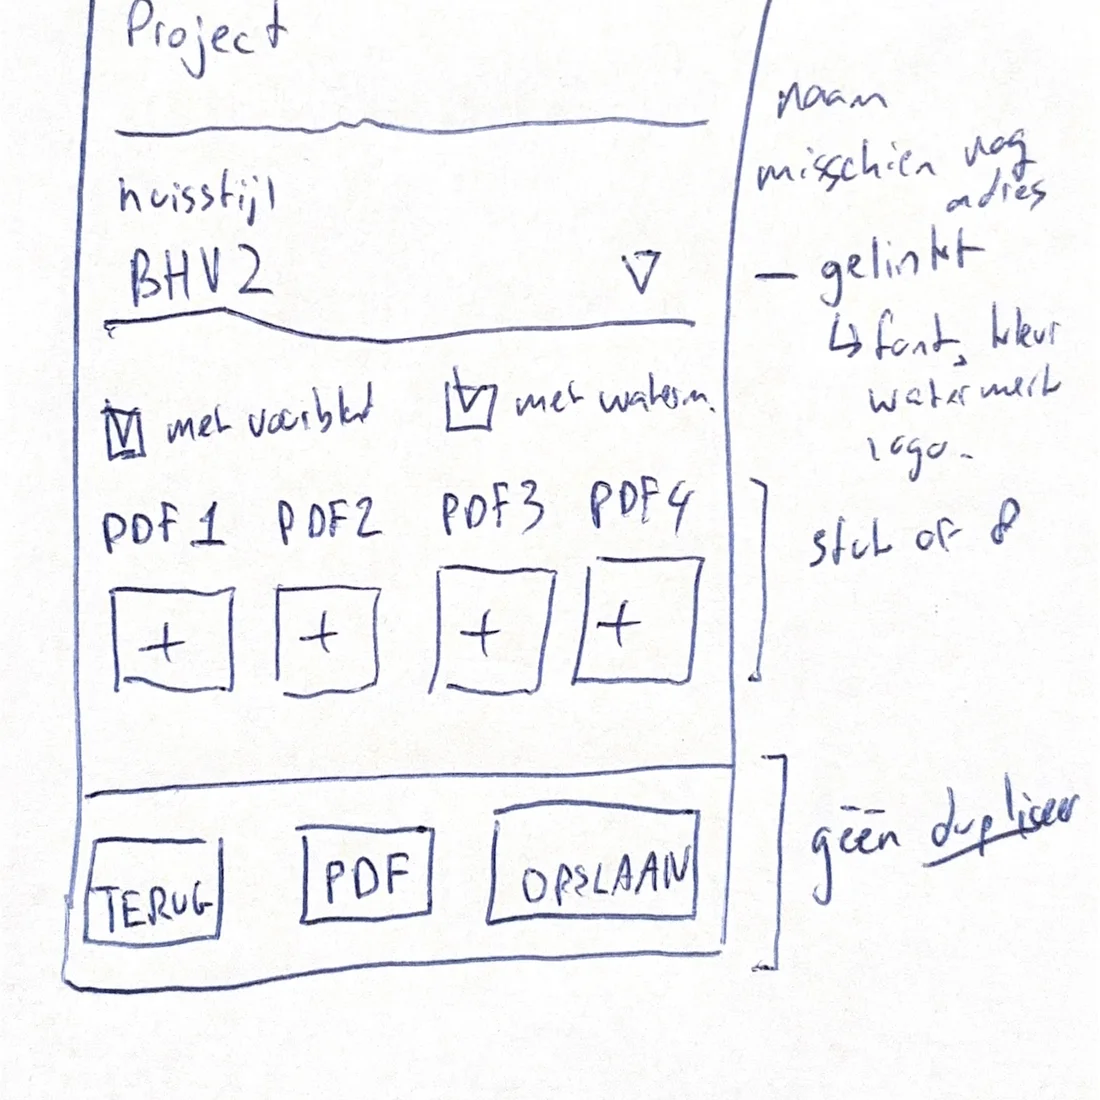 Project
naam
misschien nog
adres
huisstijl
BHV2
— gelinkt
↳ font, kleur
watermerk
logo.
met voorblad
met waterm.
PDF 1 PDF2 PDF3 PDF4
+ + + +
stuk of 8
TERUG PDF OPSLAAN
géén dupliceer